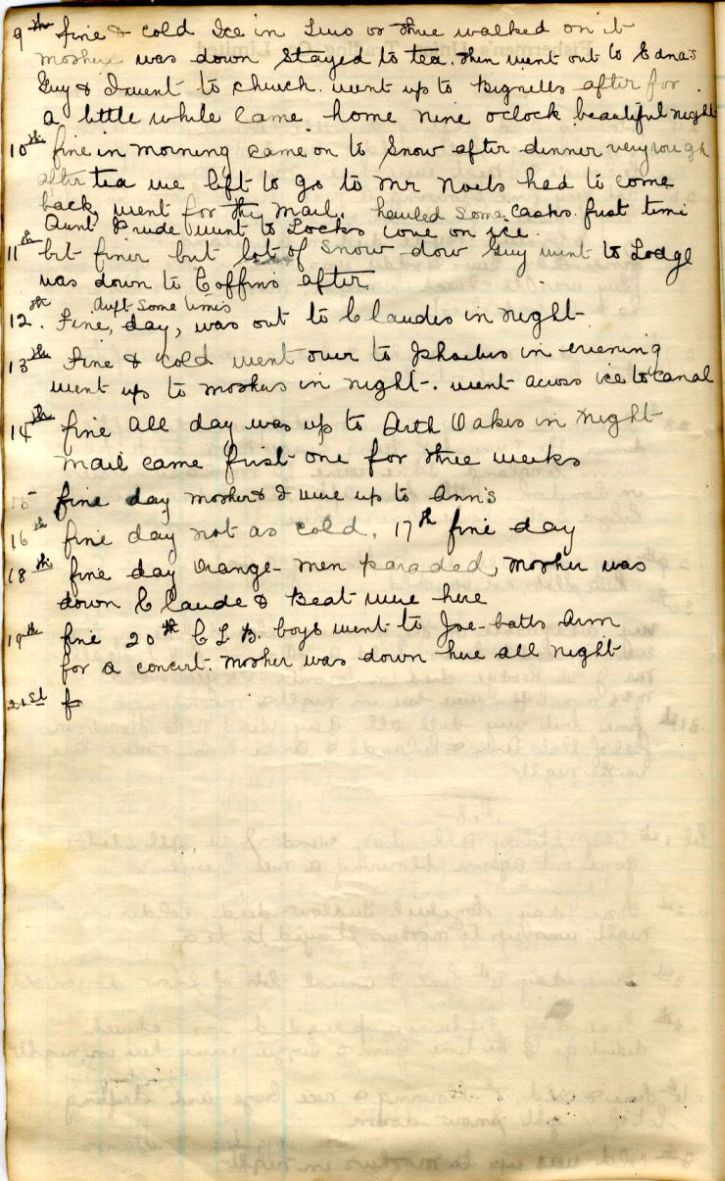 9th fine & cold Ice in Two or three walked on it
Mother was down Stayed to tea. then went out to Edna's
Guy & I went to church. went up to Bignells after for
a little while came home nine oclock beautiful night
10th fine in morning came on to Snow after dinner very rough
after tea we left to go to Mr had to come
back, went for the mail. hauled some casks. first time
Aunt Prude went to Locks cove on ice.
11th bit finer but lot of Snow down Guy went to Lodge
was down to Coffins after
drift some times
12th. Fine, day, was out to Claudes in night
13th Fine & cold went over to Phoebes in evening
went up to mothers in night. went across ice to canal
14th fine all day was up to Arth Oakes in night
mail came first one for three weeks
15 fine day mother & I were up to Ann's
16th fine day not as cold. 17th fine day
18th fine day Orange-men paraded, mother was
down Claude & Beat were here
19th fine 20th C L B. boys went to Joe-batts Arm
for a concert. mother was down here all night
21st f